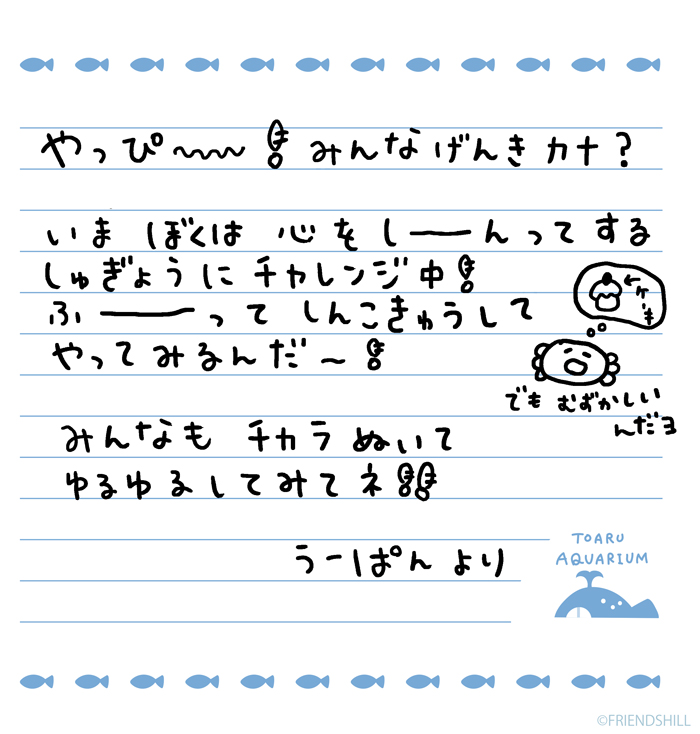 やっぴ〜〜〜！みんなげんきカナ？
いま ぼくは 心を しーーんってする
しゅぎょうに チャレンジ中！
ふーーーって しんこきゅうして
やってみるんだ〜！
←ケーキ
でも むずかしい
んだヨ
みんなも チカラ ぬいて
ゆるゆるしてみてネ!!
うーぱん より
TOARU
AQUARIUM
©FRIENDSHILL